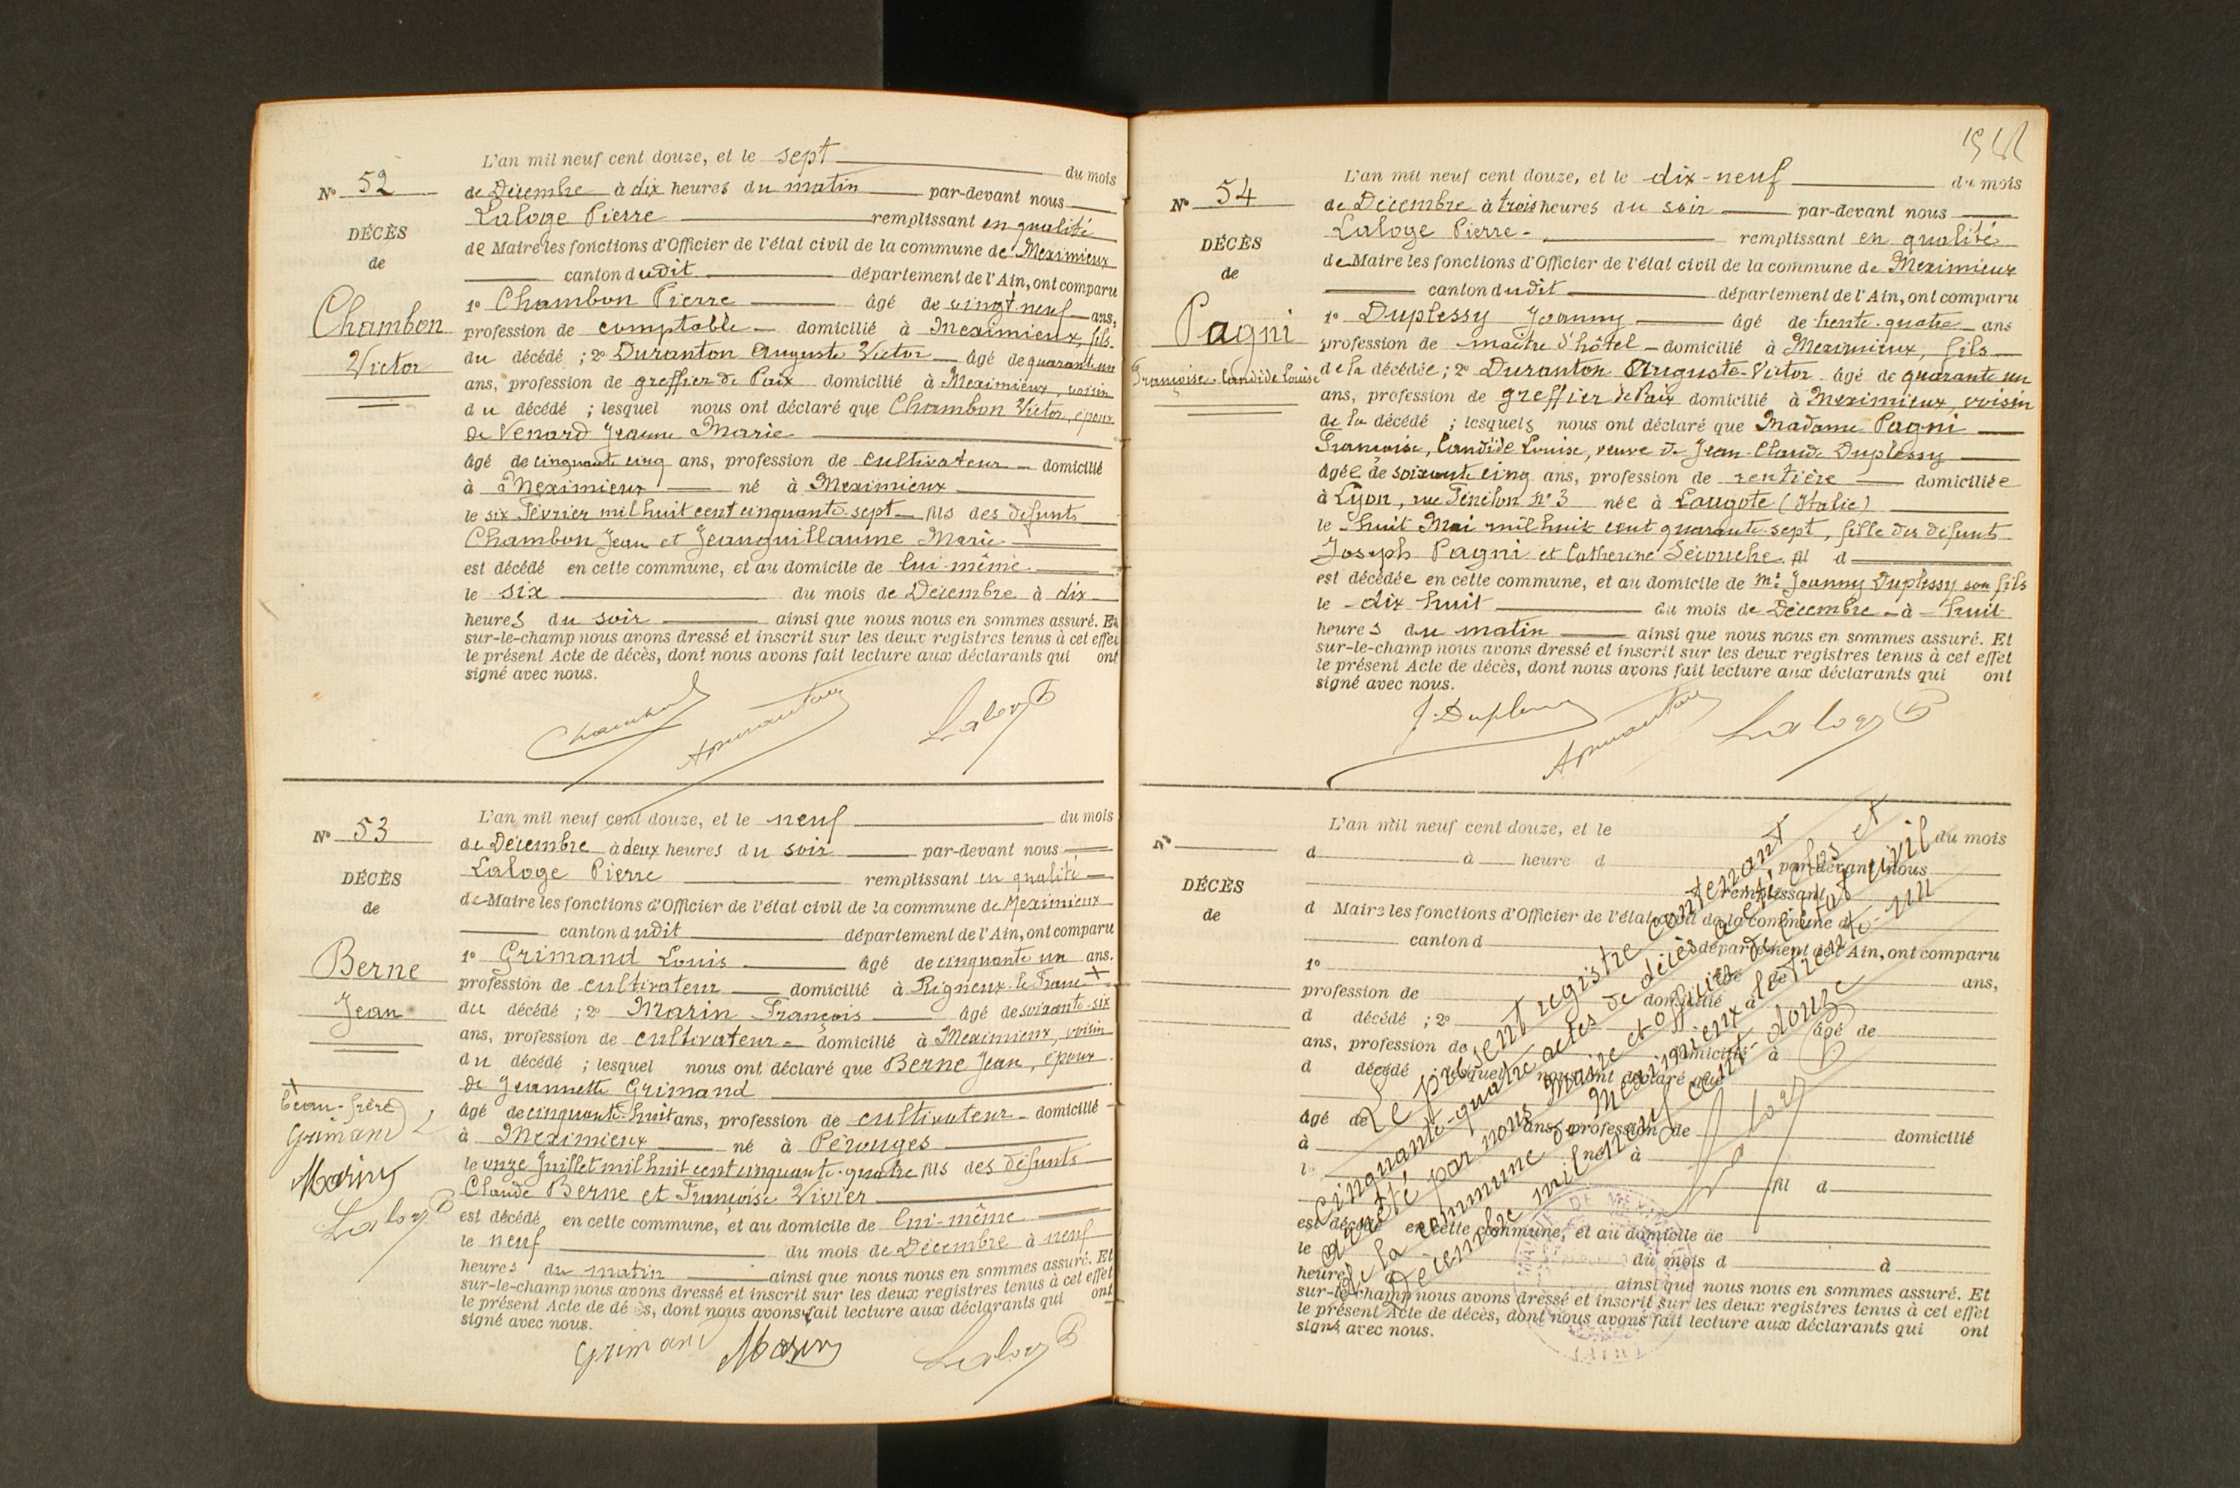 L'an mil neuf cent douze, et le sept du mois
N° 52
de Décembre à dix heures du matin par-devant nous
Laloge Pierre remplissant en qualité
DÉCÈS
de Maire les fonctions d'Officier de l'état civil de la commune de Meximieux
de
canton dudit département de l'Ain, ont comparu
1° Chambon Pierre âgé de vingt neuf ans,
Chambon
profession de comptable domicilié à Meximieux, fils
Victor
du décédé ; 2° Duranton Auguste Victor âgé de quarante un
ans, profession de greffier de Paix domicilié à Meximieux, voisin
du décédé ; lesquel nous ont déclaré que Chambon Victor, époux
de Venard Jeanne Marie
âgé de cinquante cinq ans, profession de cultivateur domicilié
à à Meximieux né à Meximieux
le six Février mil huit cent cinquante-sept fils des défunts
Chambon Jean et Jeanguillaume Marie
est décédé en cette commune, et au domicile de lui-même
le six du mois de Décembre à dix
heures du soir ainsi que nous nous en sommes assuré. Et
sur-le-champ nous avons dressé et inscrit sur les deux registres tenus à cet effet
le présent Acte de décès, dont nous avons fait lecture aux déclarants qui ont
signé avec nous.
Laloge P
L'an mil neuf cent douze, et le neuf du mois
N° 53
de Décembre à deux heures du soir par-devant nous
Laloge Pierre remplissant en qualité
DÉCÈS
de Maire les fonctions d'Officier de l'état civil de la commune de Meximieux
de
canton dudit département de l'Ain, ont comparu
1° Grimand Louis âgé de cinquante un ans.
Berne
profession de cultivateur domicilié à Rigneux le Franc +
Jean
du décédé ; 2° Marin François âgé de soixante-six
ans, profession de cultivateur domicilié à Meximieux, voisin
du décédé ; lesquel nous ont déclaré que Berne Jean, époux
de Jeannette Grimand
+
beau-frère
Grimand L
Marin
Laloge P
âgé de cinquante-huit ans, profession de cultivateur domicilié
à Meximieux né à Pérouges
le onze Juillet mil huit cent cinquante-quatre fils des défunts
Claude Berne et Françoise Vivier
est décédé en cette commune, et au domicile de lui-même
le neuf du mois de Décembre à neuf
heures du matin ainsi que nous nous en sommes assuré. Et
sur-le-champ nous avons dressé et inscrit sur les deux registres tenus à cet effet
le présent Acte de décès, dont nous avons fait lecture aux déclarants qui ont
signé avec nous.
Grimand Marin Laloge P
L'an mil neuf cent douze, et le dix-neuf du mois
N° 54
de Décembre à trois heures du soir par-devant nous
Laloge Pierre remplissant en qualité
DÉCÈS
de Maire les fonctions d'Officier de l'état civil de la commune de Meximieux
de
canton dudit département de l'Ain, ont comparu
1° Duplessy Joanny âgé de trente-quatre ans
Pagni
profession de maître d'hôtel domicilié à Meximieux, fils
Françoise Candide Louise
de la décédée ; 2° Duranton Auguste-Victor âgé de quarante un
ans, profession de greffier de Paix domicilié à Meximieux, voisin
de la décédé ; lesquels nous ont déclaré que Madame Pagni
Françoise, Candide Louise, veuve de Jean-Claude Duplessy
âgée de soixante cinq ans, profession de rentière domiciliée
à Lyon, rue Fénelon n° 3 née à Laugote (Italie)
le huit Mai mil huit cent quarante-sept, fille des défunts
Joseph Pagni et Catherine fil d
est décédée en cette commune, et au domicile de Mr Joanny Duplessy son fils
le dix huit du mois de Décembre à huit
heures du matin ainsi que nous nous en sommes assuré. Et
sur-le-champ nous avons dressé et inscrit sur les deux registres tenus à cet effet
le présent Acte de décès, dont nous avons fait lecture aux déclarants qui ont
signé avec nous.
J. Duplessy Laloge P
L'an mil neuf cent douze, et le du mois
N°
d à heure d par-devant nous
remplissant
DÉCÈS
d Maire les fonctions d'Officier de l'état civil de la commune d
de
canton d département de l'Ain, ont comparu
1° âgé de ans,
profession de domicilié à
d décédé ; 2° âgé de
ans, profession de domicilié à
d décédé ; lesquel nous ont déclaré que
âgé de ans, profession de domicilié
à né à
l
fil d
est décédé en cette commune, et au domicile de
le du mois d à
heure d ainsi que nous nous en sommes assuré. Et
sur-le-champ nous avons dressé et inscrit sur les deux registres tenus à cet effet
le présent Acte de décès, dont nous avons fait lecture aux déclarants qui ont
signé avec nous.
Le présent registre contenant
cinquante-quatre actes de décès a été clos et
arrêté par nous Maire et officier de l'état civil
de la commune de Meximieux le trente-un
Décembre mil neuf cent douze
Laloge P